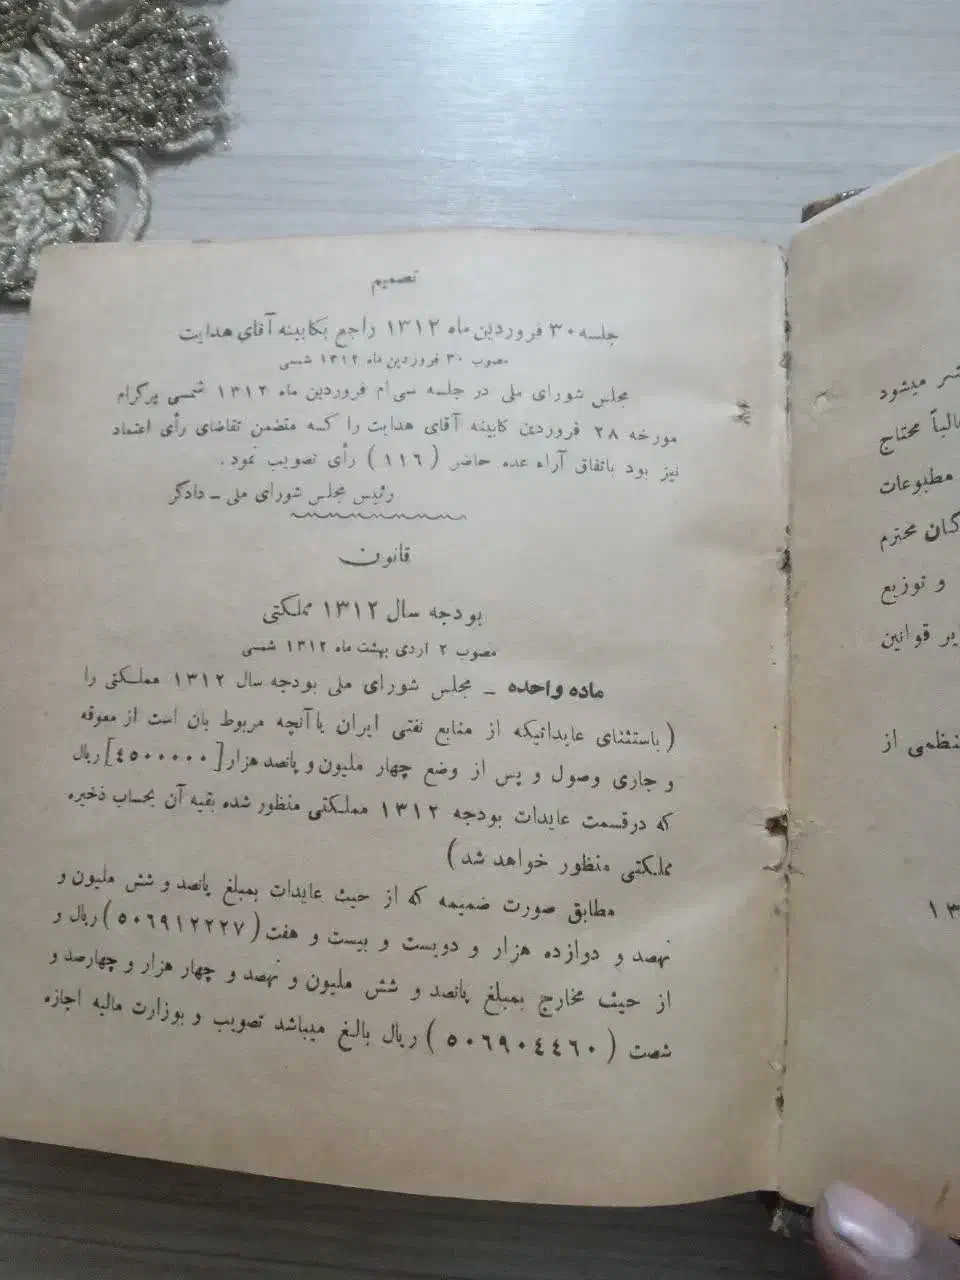 تصمیم
جلسه ۳۰ فروردین ماه ۱۳۱۲ راجع بکابینه آقای هدایت
مصوب ۳۰ فروردین ماه ۱۳۱۲ شمسی
مجلس شورای ملی در جلسه سی‌ام فروردین ماه ۱۳۱۲ شمسی پرگرام
مورخه ۲۸ فروردین کابینه آقای هدایت را که متضمن تقاضای رأی اعتماد
نیز بود باتفاق آراء عده حاضر (۱۱۶) رأی تصویب نمود.
رئیس مجلس شورای ملی ـ دادگر
قانون
بودجه سال ۱۳۱۲ مملکتی
مصوب ۲ اردی بهشت ماه ۱۳۱۲ شمسی
ماده واحده ـ مجلس شورای ملی بودجه سال ۱۳۱۲ مملکتی را
(باستثنای عایداتیکه از منابع نفتی ایران یا آنچه مربوط بان است از معوقه
و جاری وصول و پس از وضع چهار ملیون و پانصد هزار [۴۵۰۰۰۰۰] ریال
که در قسمت عایدات بودجه ۱۳۱۲ مملکتی منظور شده بقیه آن بحساب ذخیره
مملکتی منظور خواهد شد)
مطابق صورت ضمیمه که از حیث عایدات بمبلغ پانصد و شش ملیون و
نهصد و دوازده هزار و دویست و بیست و هفت (۵۰۶۹۱۲۲۲۷) ریال و
از حیث مخارج بمبلغ پانصد و شش ملیون و نهصد و چهار هزار و چهارصد و
شصت (۵۰۶۹۰۴۴۶۰) ریال بالغ میباشد تصویب و بوزارت مالیه اجازه
شر میشود
محتاج
مطبوعات
محترم
و توزیع
قوانین
از